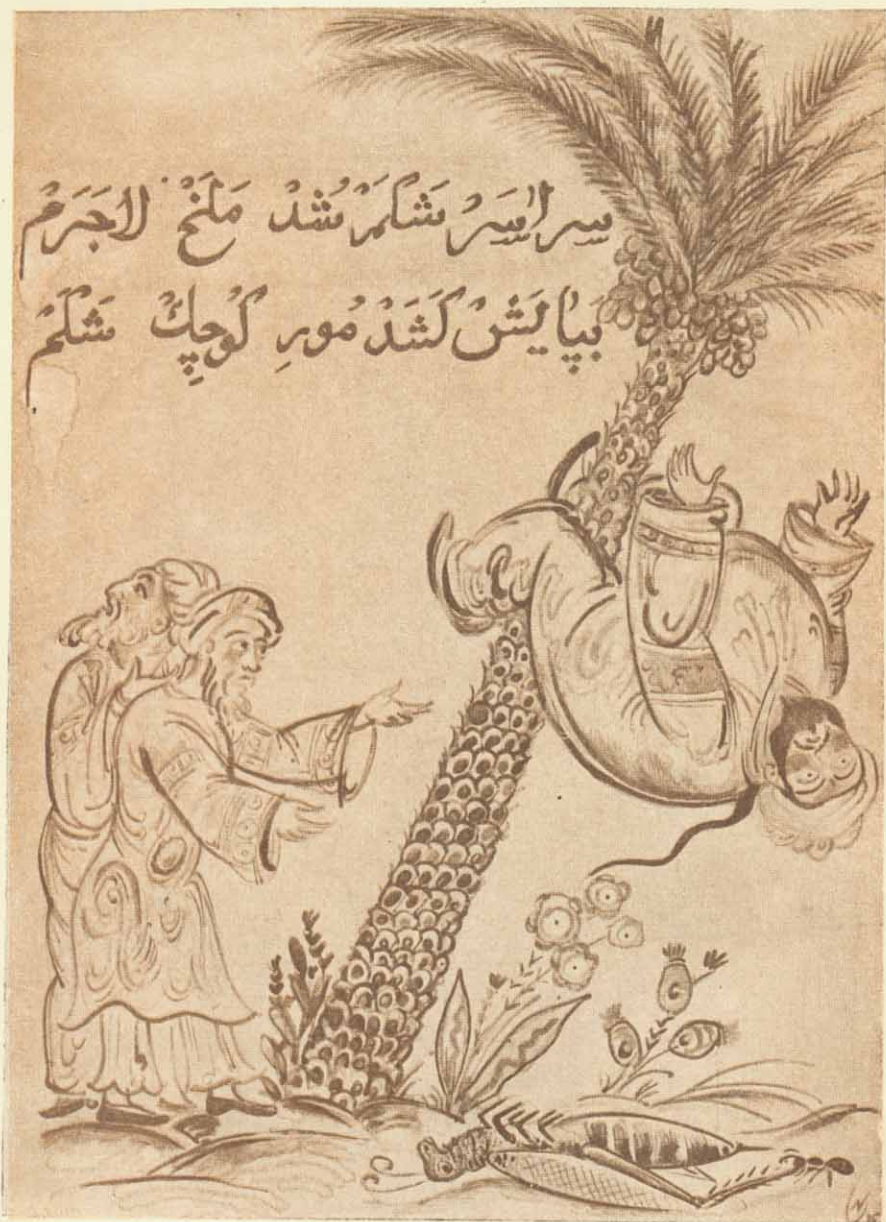 سراسر شکم شد ملخ لاجرم
بپایش کشد مور کوچک شکم